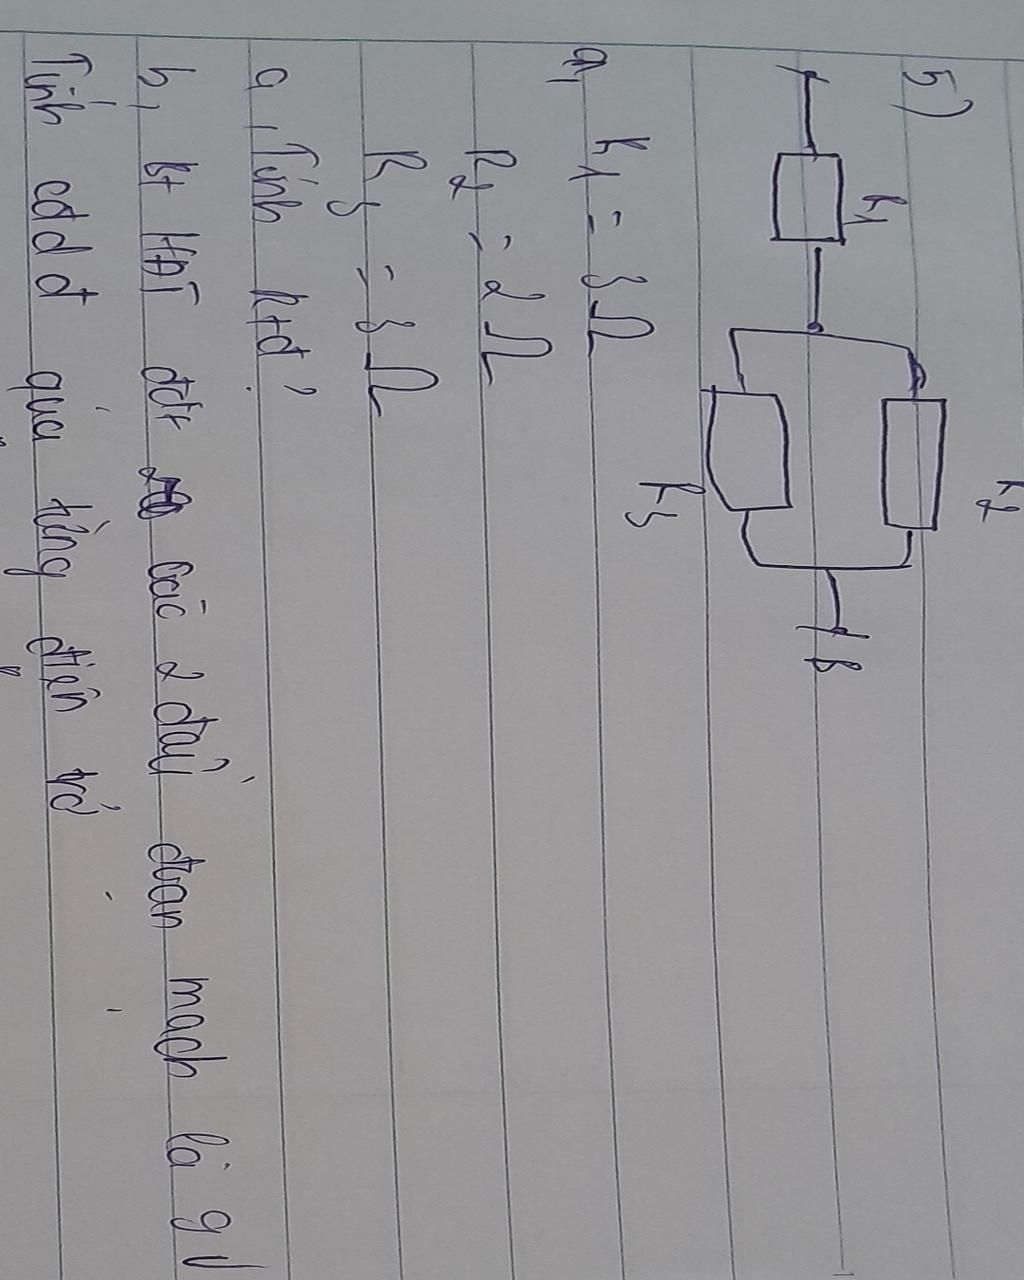 5)
R1
R2
R3
B
a, R1 = 3Ω
R2 = 2Ω
R3 = 3Ω
a, Tính Rtđ?
b, bt HĐT đặt các 2 đầu đoạn mạch là 9V
Tính cđdđ qua từng điện trở